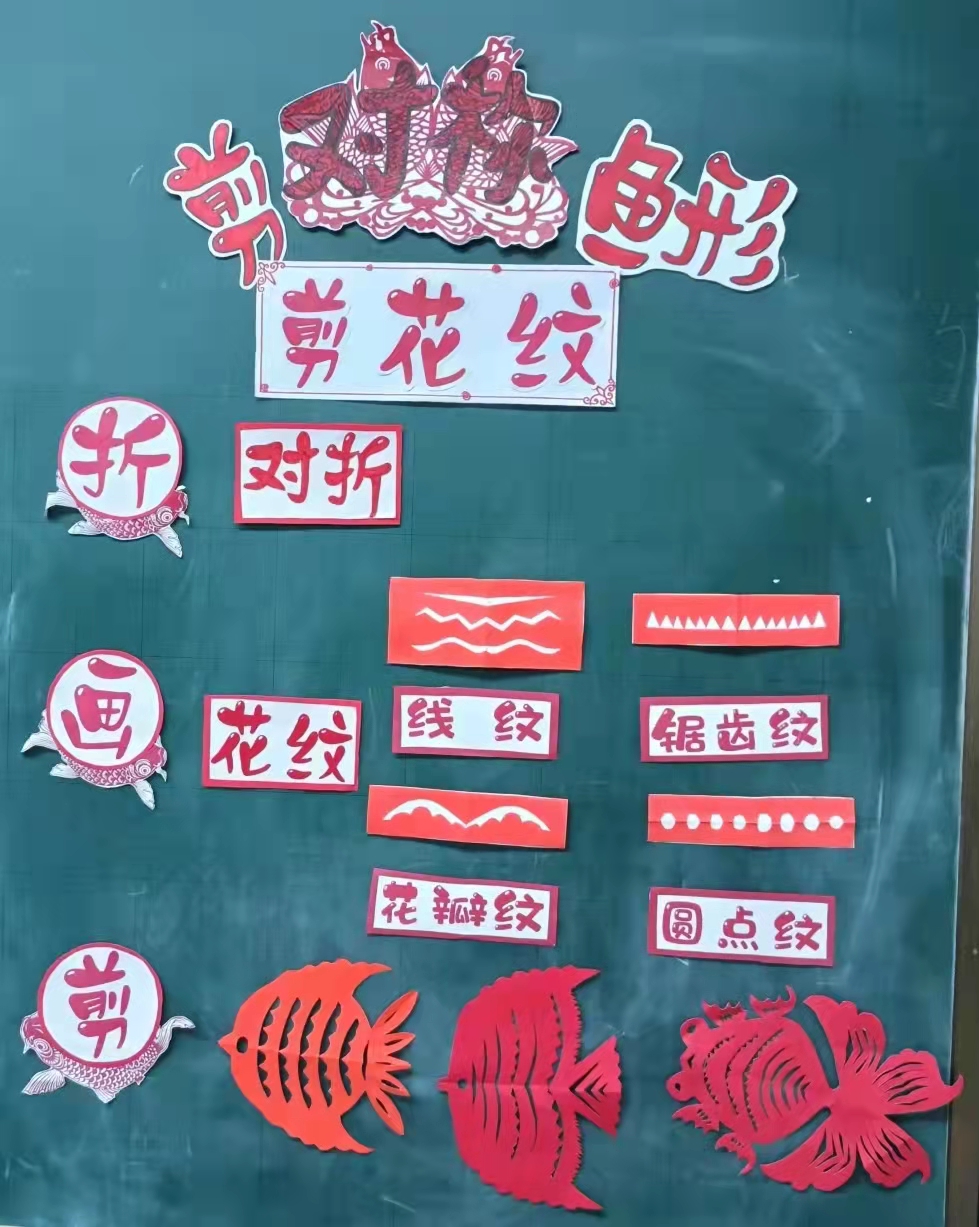 剪对称鱼形
剪花纹
折 对折
画 花纹 线纹 锯齿纹
花瓣纹 圆点纹
剪